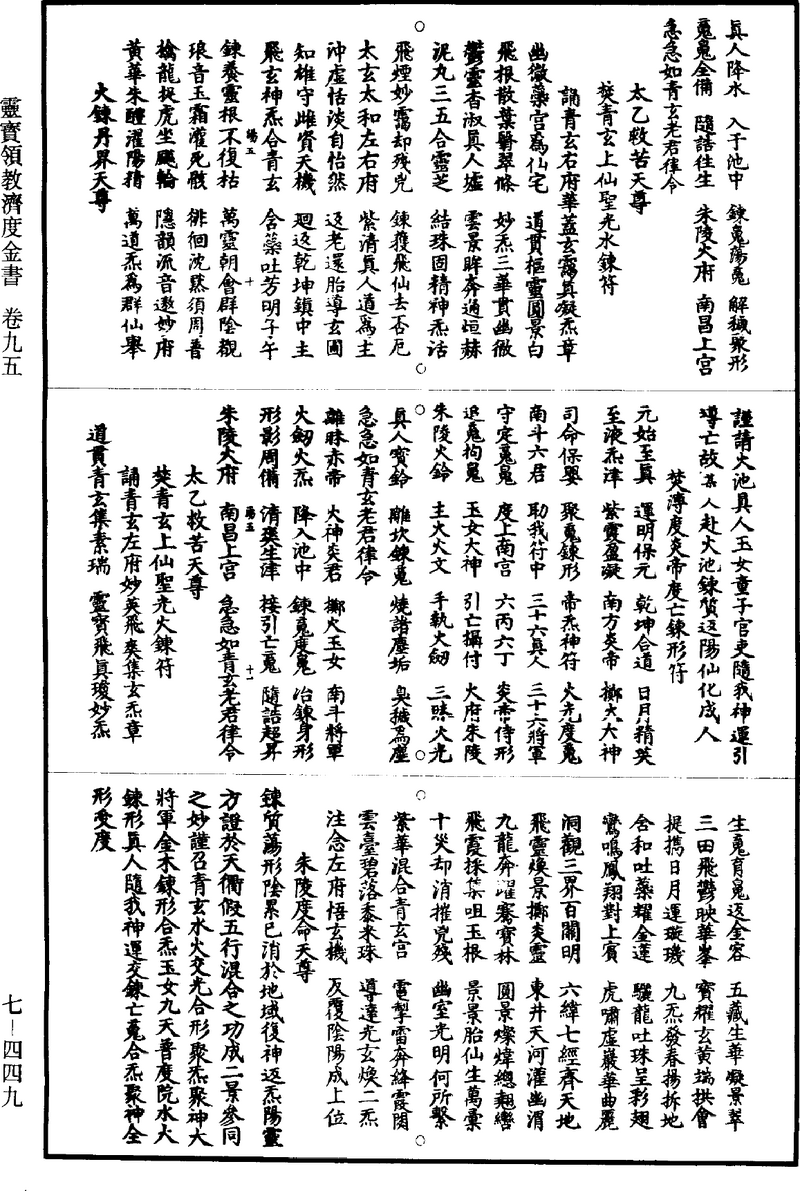 靈寶領教濟度金書　卷九五
七—四四九
眞人降水　入于池中　鍊魂蕩魄　解穢聚形
魂魄全備　隨詰往生　朱陵火府　南昌上宮
急急如青玄老君律令
太乙救苦天尊
焚青玄上仙聖光水鍊符
誦青玄右府華蓋玄靄眞凝炁章
幽微蘂宮爲仙宅　道貫樞靈圓景白
飛根散葉翳翠條　妙炁三華貫幽微
鬱靈香淑眞人墟　雲景眸奔過垣赫
泥丸三五合靈芝　結珠固精神炁活
飛煙妙靄却殘兇　鍊獲飛仙去否厄
太玄太和左右府　紫清眞人道爲主
沖虛恬淡自怡然　返老還胎導玄圃
知雄守雌資天機　迴返乾坤鎮中主
飛玄神炁合青玄　含蘂吐芳明子午
鍊養靈根不復枯　萬靈朝會群陰觀
琅音玉霜灌死骸　徘徊沈蒸須周普
檎龍捉虎坐飇輪　隱韻流音遨妙府
黃華朱醴濯陽精　萬道炁爲群仙舉
火鍊丹界天尊
謹請火池眞人玉女童子官吏隨我神運引
導亡故某人赴火池鍊質返陽仙化成人
焚薄度炎帝度亡鍊形符
元始至眞　運明保元　乾坤合道　日月精英
至液炁津　紫靈盈凝　南方炎帝　擲火大神
司命保嬰　聚魂鍊形　帝炁神符　火光度魂
南斗六君　助我符中　三十六眞人　三十六將軍
守定魂魄　度上南宮　六丙六丁　炎帝侍形
追魂拘魄　玉女大神　引亡攝付　火府朱陵
朱陵火鈴　主火火文　手執火劒　三昧火光
眞人寶鈴　離坎鍊魂　燒諸塵垢　臭穢爲塵
急急如青玄老君律令
離昧赤帝　火神炎君　擲火玉女　南斗將軍
火劒火炁　降入池中　鍊魂度魄　冶鍊身形
形影周備　清爽生津　接引亡魂　隨詰超昇
朱陵火府　南昌上宮　急急如青玄老君律令
太乙救苦天尊
焚青玄上仙聖光火鍊符
誦青玄左府妙英飛奕集玄炁章
道貫青玄集素瑞　靈寶飛眞瓊妙炁
生魂育魄返全容　五藏生華凝景翠
三田飛鬱映華峯　寶耀玄黃瑞拱會
提攜日月運璇璣　九炁發春揚拆地
含和吐蘂耀金蓮　驪龍吐珠呈彩翅
鸞鳴鳳翔對上賓　虎嘯虛巖華曲麗
洞觀三界百關明　六緯七經齊天地
飛靈煥景擲炎靈　東井天河灌幽涓
九龍奔躍騫寶林　圓景燦煒總翹轡
飛霞採集咀玉根　景景胎仙生萬彙
十災却消摧兇殘　幽室光明何所繫
紫華混合青玄宮　電掣雷奔絳霞閣
雲臺碧落黍米珠　導達光玄煥二炁
注念左府悟玄機　反覆陰陽成上位
朱陵度命天尊
鍊質蕩形陰累已消於地域復神返炁陽靈
方證於天衢假五行混合之功成二景參同
之妙謹召青玄水火交光合形聚炁聚神大
將軍金木鍊形合炁玉女九天普度院水火
鍊形眞人隨我神運交鍊亡魂合炁聚神全
形受度